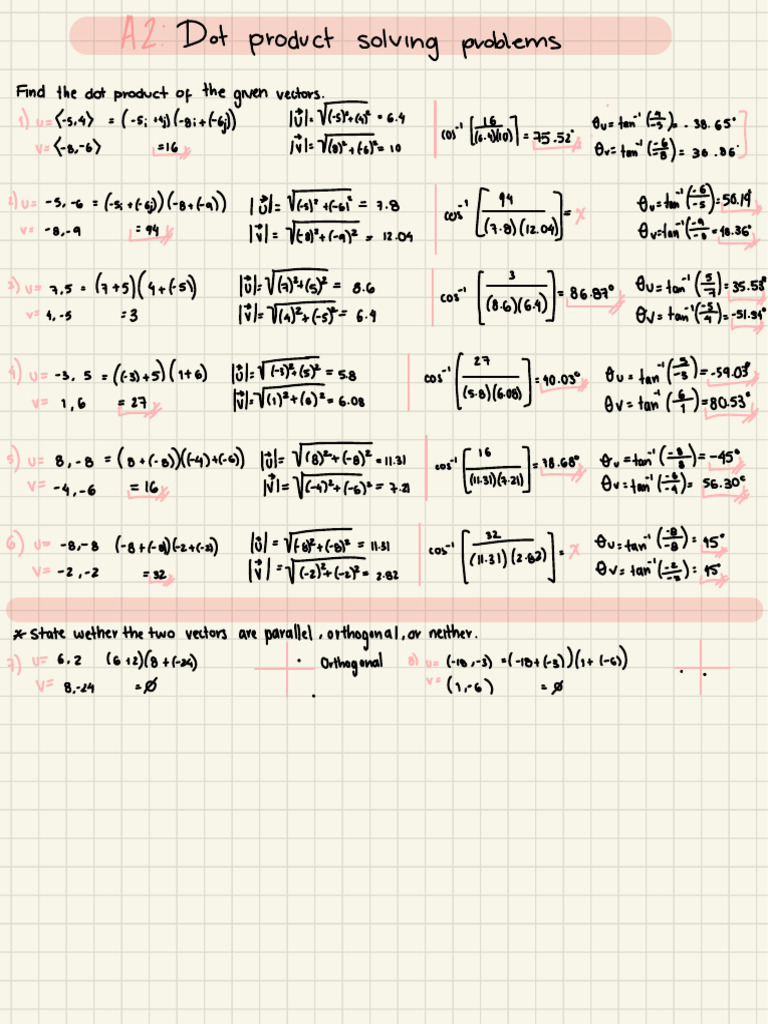 A2: Dot product solving problems
Find the dot product of the given vectors.
1) u= ⟨-5,4⟩ = (-5i +4j)(-8i+(-6j)) |u⃗|= √(-5)²+(4)² = 6.4 cos⁻¹ [16/(6.4)(10)] = 75.52° θu=tan⁻¹(4/-5)= -38.65°
v= ⟨-8,-6⟩ =16 |v⃗|= √(8)²+(-6)² = 10 θv=tan⁻¹(-6/-8) = 36.86°
2) u= -5, -6 = (-5i+(-6j))(-8+(-9)) |u⃗| = √(-5)² +(-6)² = 7.8 cos⁻¹ [94/(7.8)(12.04)] = x θu=tan⁻¹(-6/-5)=50.19°
v= -8,-9 = 94 |v⃗| = √(-8)²+(-9)² = 12.04 θv=tan⁻¹(-9/-8)=48.36°
3) u= 7,5 = (7+5)(4+(-5)) |u⃗|= √(7)²+(5)² = 8.6 cos⁻¹ [3/(8.6)(6.4)] = 86.87° θu=tan⁻¹(5/7)=35.53°
v= 4,-5 =3 |v⃗|= √(4)²+(-5)² = 6.4 θv=tan⁻¹(-5/4)=-51.34°
4) u= -3, 5 = ((-3)+5)(1+6) |u⃗|= √(-3)²+(5)² = 5.8 cos⁻¹ [27/(5.8)(6.08)] = 40.03° θu=tan⁻¹(5/-3)=-59.03°
v= 1,6 = 27 |v⃗|= √(1)²+(6)² = 6.08 θv = tan⁻¹(6/1)=80.53°
5) u= 8,-8 = (8+(-8))((-4)+(-6)) |u⃗|= √(8)²+(-8)² = 11.31 cos⁻¹ [16/(11.31)(7.21)] = 78.68° θu=tan⁻¹(-8/8)= -45°
v= -4,-6 = 16 |v⃗|= √(-4)²+(-6)² = 7.21 θv=tan⁻¹(-6/-4)= 56.30°
6) u= -8,-8 (-8+(-8)(-2+(-2)) |u⃗| = √(-8)²+(-8)² = 11.31 cos⁻¹ [32/(11.31)(2.82)] = x θu=tan⁻¹(-8/-8)= 45°
v= -2,-2 =32 |v⃗| = √(-2)²+(-2)² = 2.82 θv= tan⁻¹(-2/-2)= 45°
* State wether the two vectors are parallel, orthogonal, or neither.
7) u= 6,2 (6+2)(8+(-24) Orthogonal 8) u= (-18,-3) =(-18+(-3))(1+(-6)
v= 8,-24 =∅ v= (1,-6) =∅